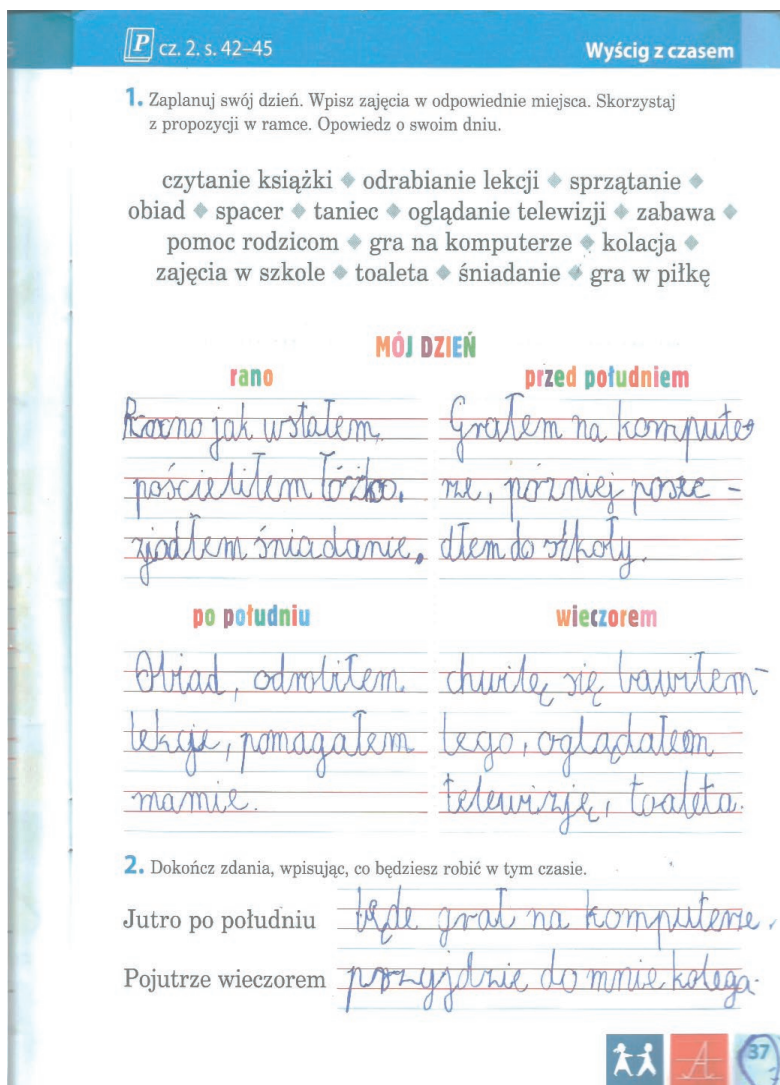 P cz. 2. s. 42–45
Wyścig z czasem
1. Zaplanuj swój dzień. Wpisz zajęcia w odpowiednie miejsca. Skorzystaj
z propozycji w ramce. Opowiedz o swoim dniu.
czytanie książki ◆ odrabianie lekcji ◆ sprzątanie ◆
obiad ◆ spacer ◆ taniec ◆ oglądanie telewizji ◆ zabawa ◆
pomoc rodzicom ◆ gra na komputerze ◆ kolacja ◆
zajęcia w szkole ◆ toaleta ◆ śniadanie ◆ gra w piłkę
MÓJ DZIEŃ
rano
Rano jak wstałem
pościeliłem łóżko,
zjadłem śniadanie.
przed południem
Grałem na kompute
rze, pózniej posze-
dłem do szkoły.
po południu
Obiad, odrobiłem
lekcje, pomagałem
mamie.
wieczorem
chwilę się bawiłem-
lego, oglądałem
telewizję, toaleta.
2. Dokończ zdania, wpisując, co będziesz robić w tym czasie.
Jutro po południu będe grał na komputerze.
Pojutrze wieczorem przyjdzie do mnie kolega.
A
37